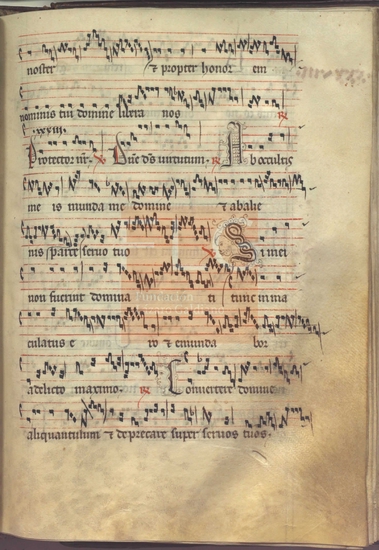 noster & propter honor em
nominis tui domine libera nos
.xxxiii.
Protector nr. Dne ds uirtutum. Ab occultis
me is munda me domine & ab alie
nis sparce seruo tuo Si mei
non fuerint domina ti tunc inma
culatus e ro & emunda bor
a delicto maximo. Conuertere domine
aliquantulum & deprecare super seruos tuos.